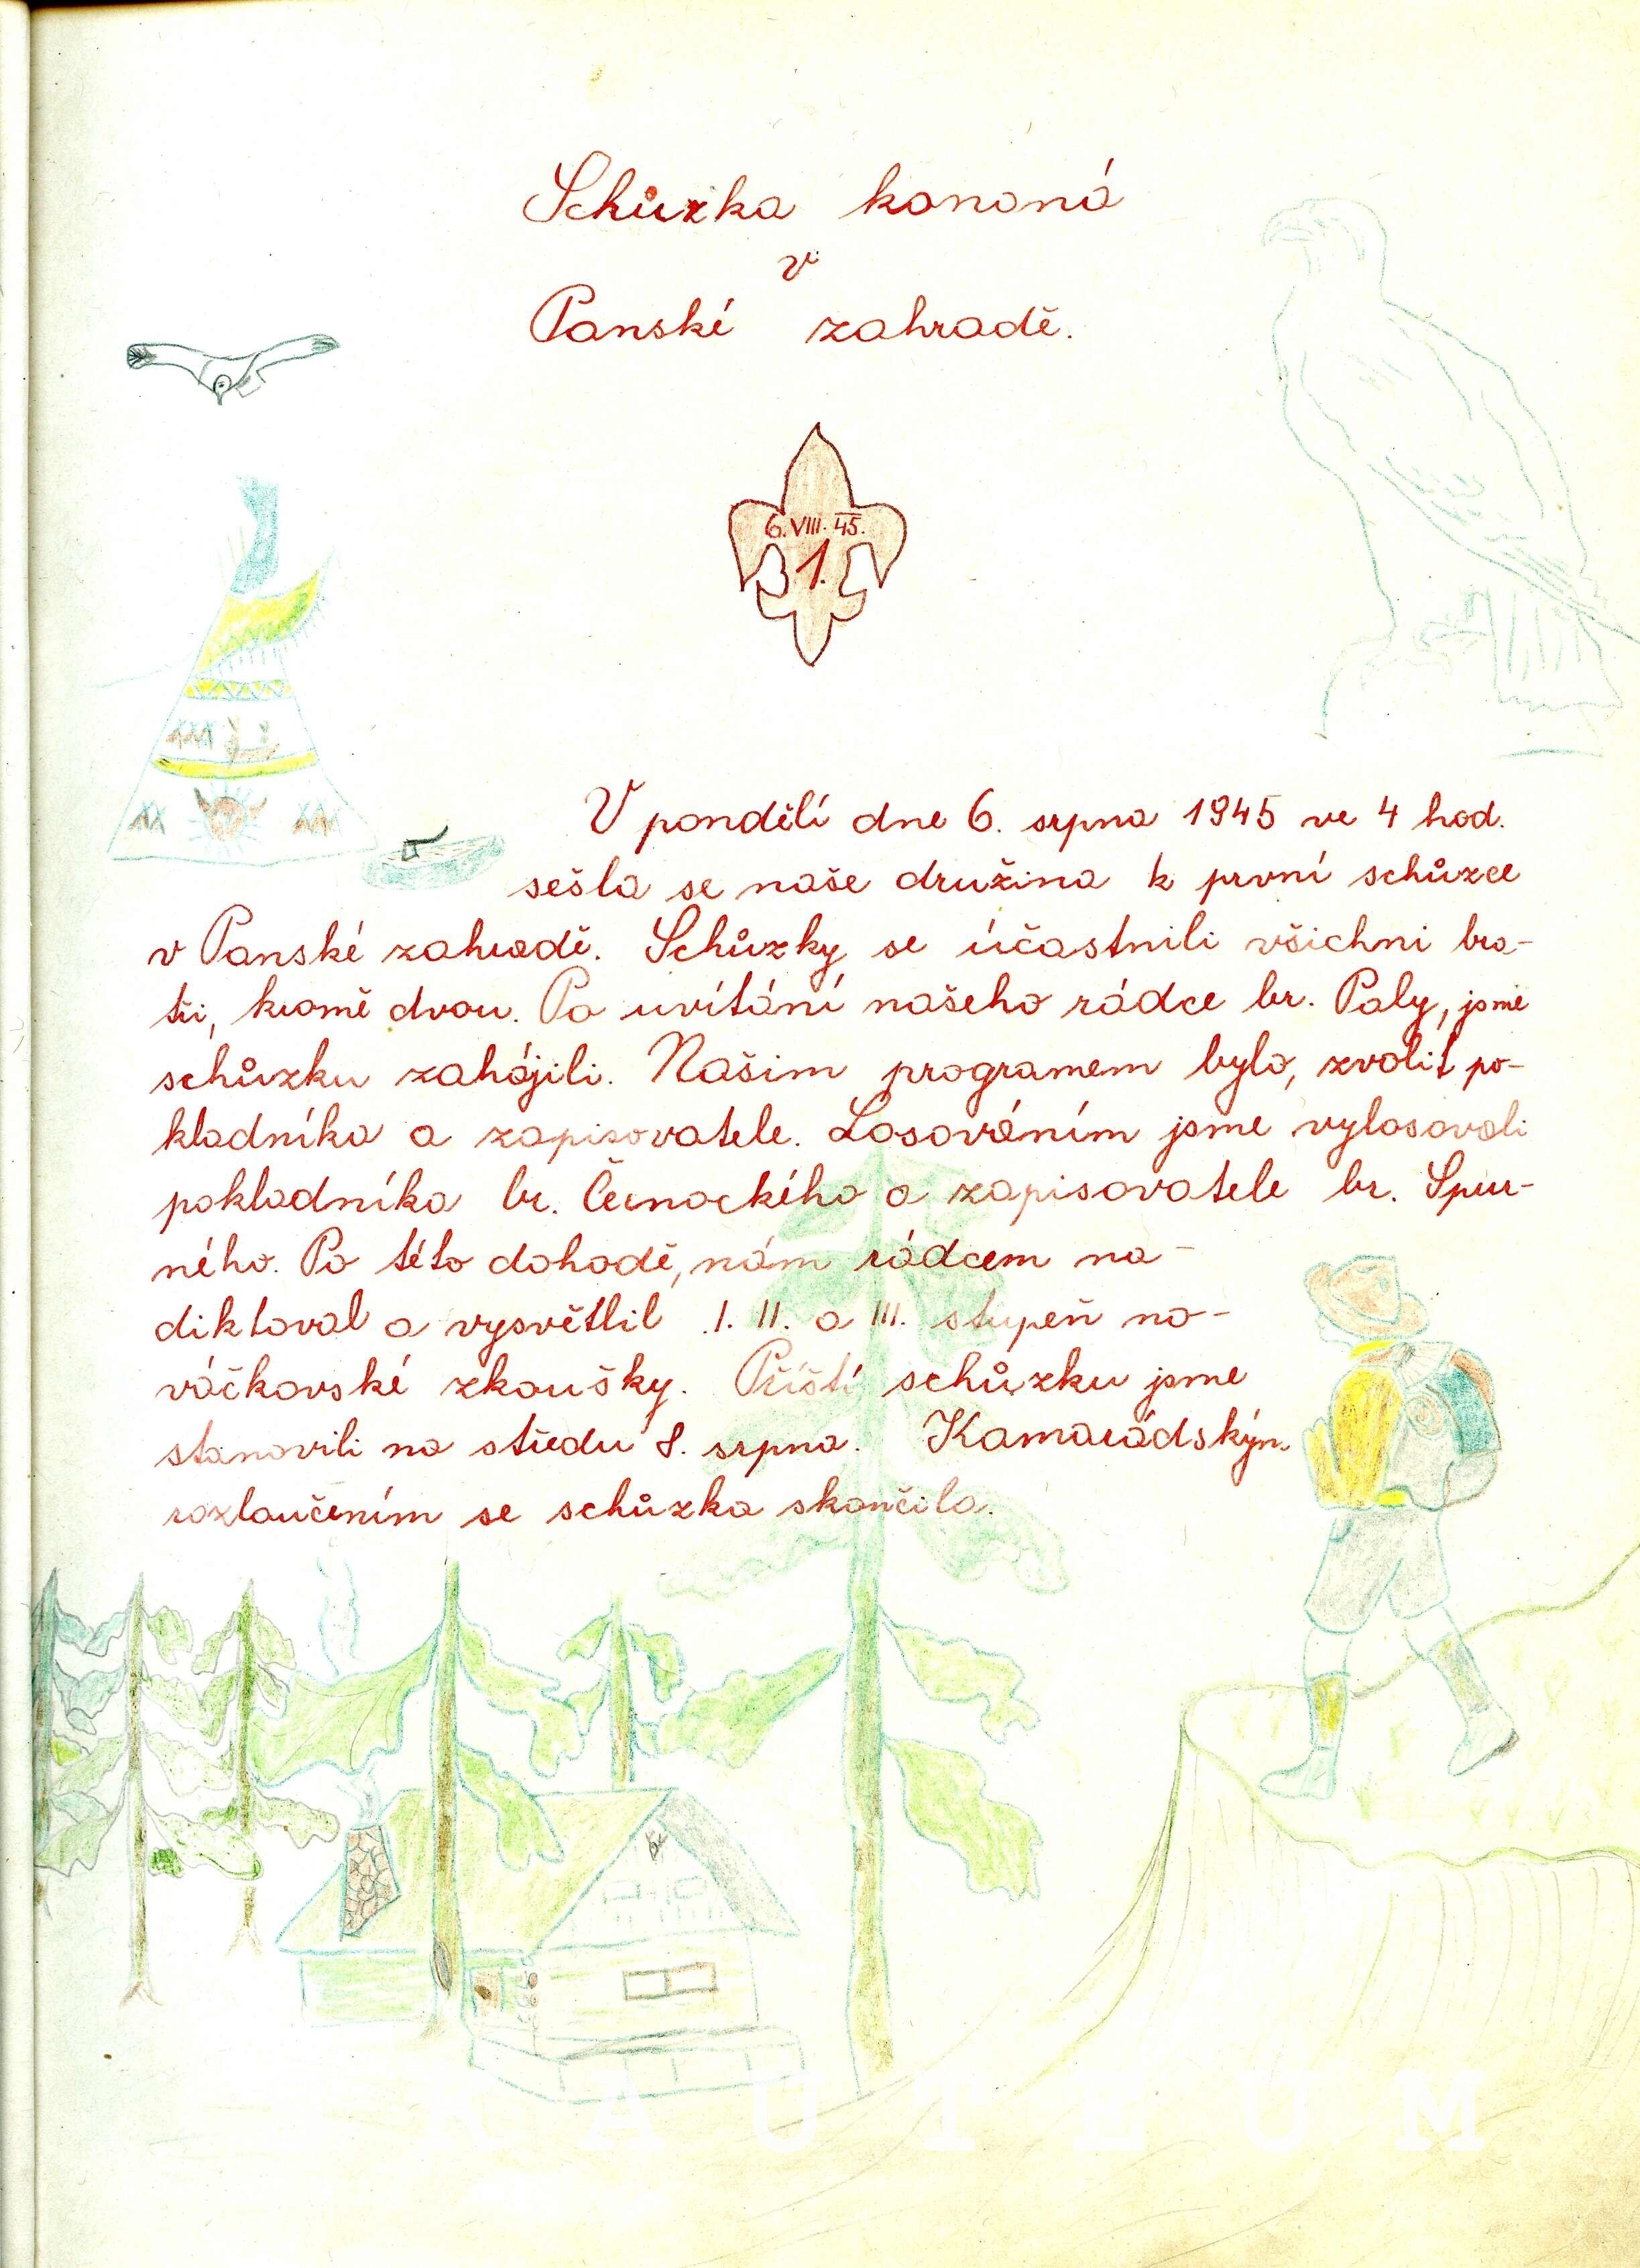 Schůzka konaná
v
Panské zahradě.
6. VIII. 45.
1.
V pondělí dne 6. srpna 1945 ve 4 hod.
sešla se naše družina k první schůzce
v Panské zahradě. Schůzky se účastnili všichni bra-
tři, kromě dvou. Po uvítání našeho rádce br. Paly, jsme
schůzku zahájili. Našim programem bylo, zvolit po-
kladníka a zapisovatele. Losováním jsme vylosovali
pokladníka br. Černockého a zapisovatele br. Spur-
ného. Po této dohodě, nám rádcem na-
diktoval a vysvětlil I. II. a III. stupeň no-
váčkovské zkoušky. Příští schůzku jsme
stanovili na středu 8. srpna. Kamarádským
rozloučením se schůzka skončila.